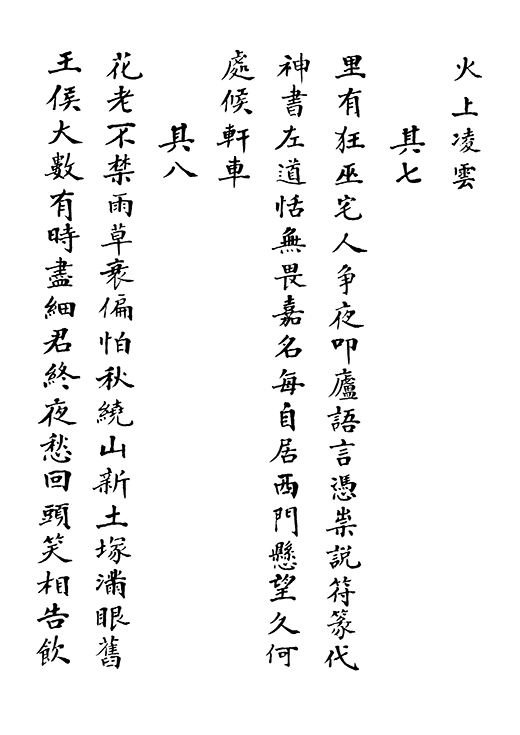 火上凌雲
其七
里有狂巫宅人争夜叩廬語言憑祟説符篆代
神書左道恬無畏嘉名每自居西門懸望久何
處候軒車
其八
花老不禁雨草衰偏怕秋繞山新土塚滿眼舊
王侯大數有時盡細君終夜愁回頭笑相告飲